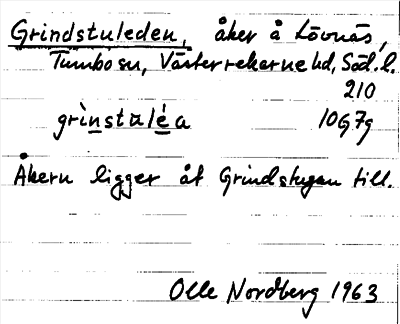 Grindstuleden, åker å Lövnäs,
Tumbo sn, Västerrekarne hd, Söd. l.
210
grìnstuléa 10G7g
Åkern ligger åt Grindstugan till.
Olle Nordberg 1963